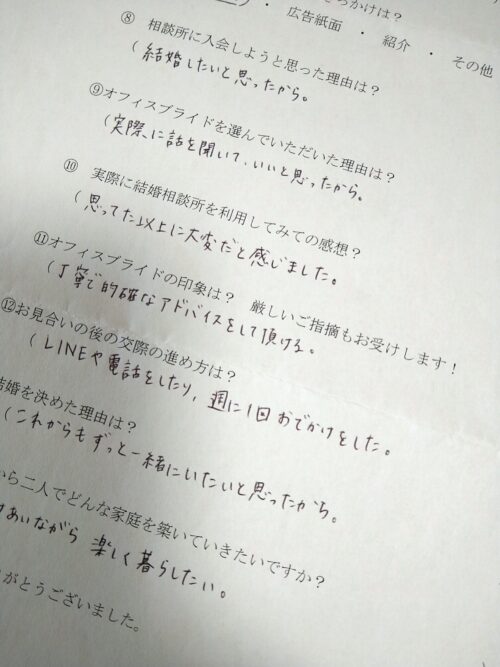 きっかけは？
・ 広告紙面 ・ 紹介 ・ その他
⑧ 相談所に入会しようと思った理由は？
（結婚したいと思ったから。
⑨オフィスブライドを選んでいただいた理由は？
（実際に話を聞いて、いいと思ったから。
⑩ 実際に結婚相談所を利用してみての感想？
（思ってた以上に大変だと感じました。
⑪オフィスブライドの印象は？ 厳しいご指摘もお受けします！
（丁寧で的確なアドバイスをして頂ける。
⑫お見合いの後の交際の進め方は？
（LINEや電話をしたり、週に1回おでかけをした。
結婚を決めた理由は？
（これからもずっと一緒にいたいと思ったから。
から二人でどんな家庭を築いていきたいですか？
あいながら 楽しく暮らしたい。
がとうございました。